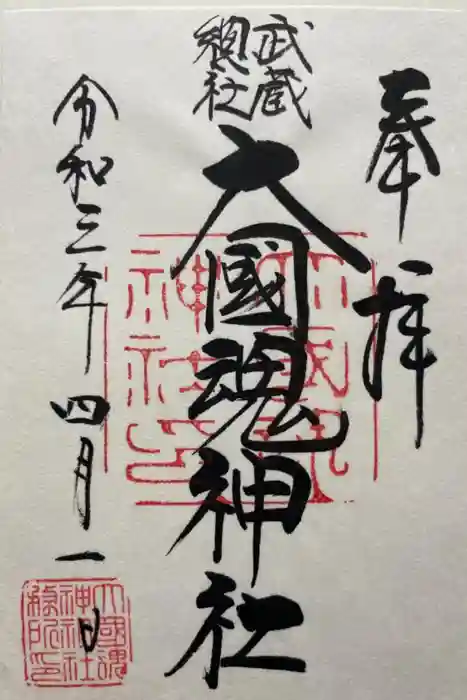 奉拝
武蔵
總社
大國魂神社
令和三年四月一日
大國魂
神社印
大國魂
神神社
務所印